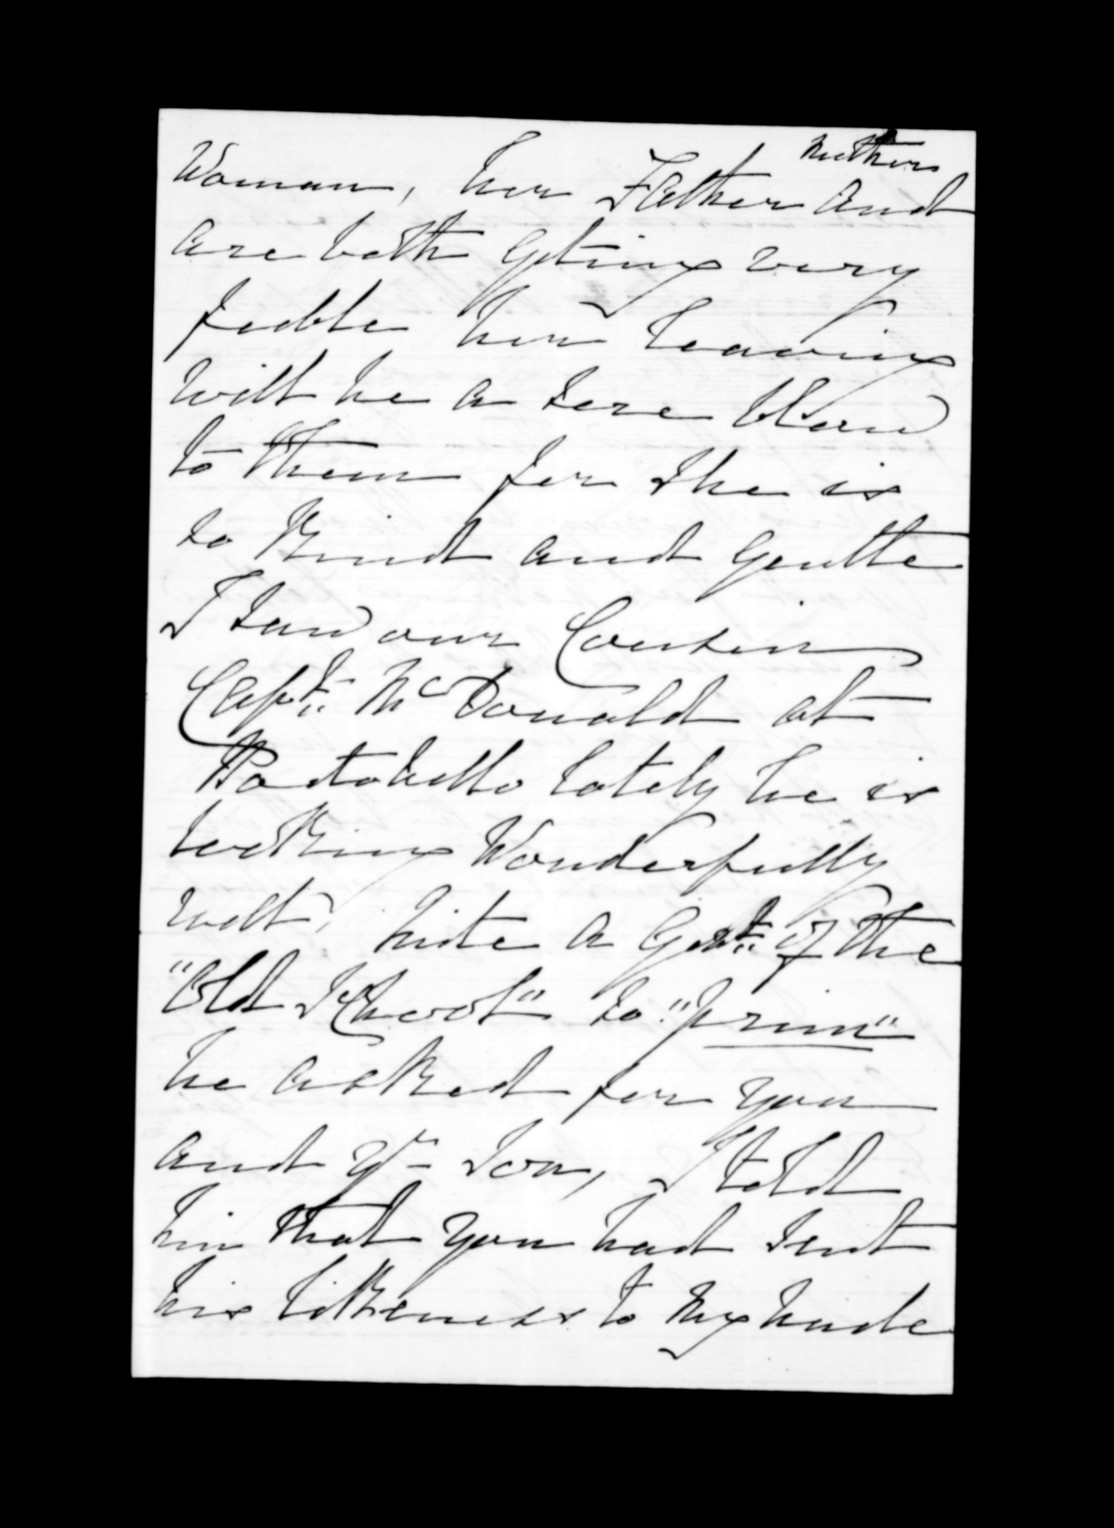 Woman, her Father and Mother
are both geting very
feeble her leaving
will be a sere blow
to them for she is
so kind and gentle
I saw our Cousin
Captn. McDonald at
Portobello lately he is
looking Wonderfully
well, quite a Gent. of the
"Old School" so "prim"
he asked for you
and yr Son, I told
him that you had sent
his likeness to My Uncle